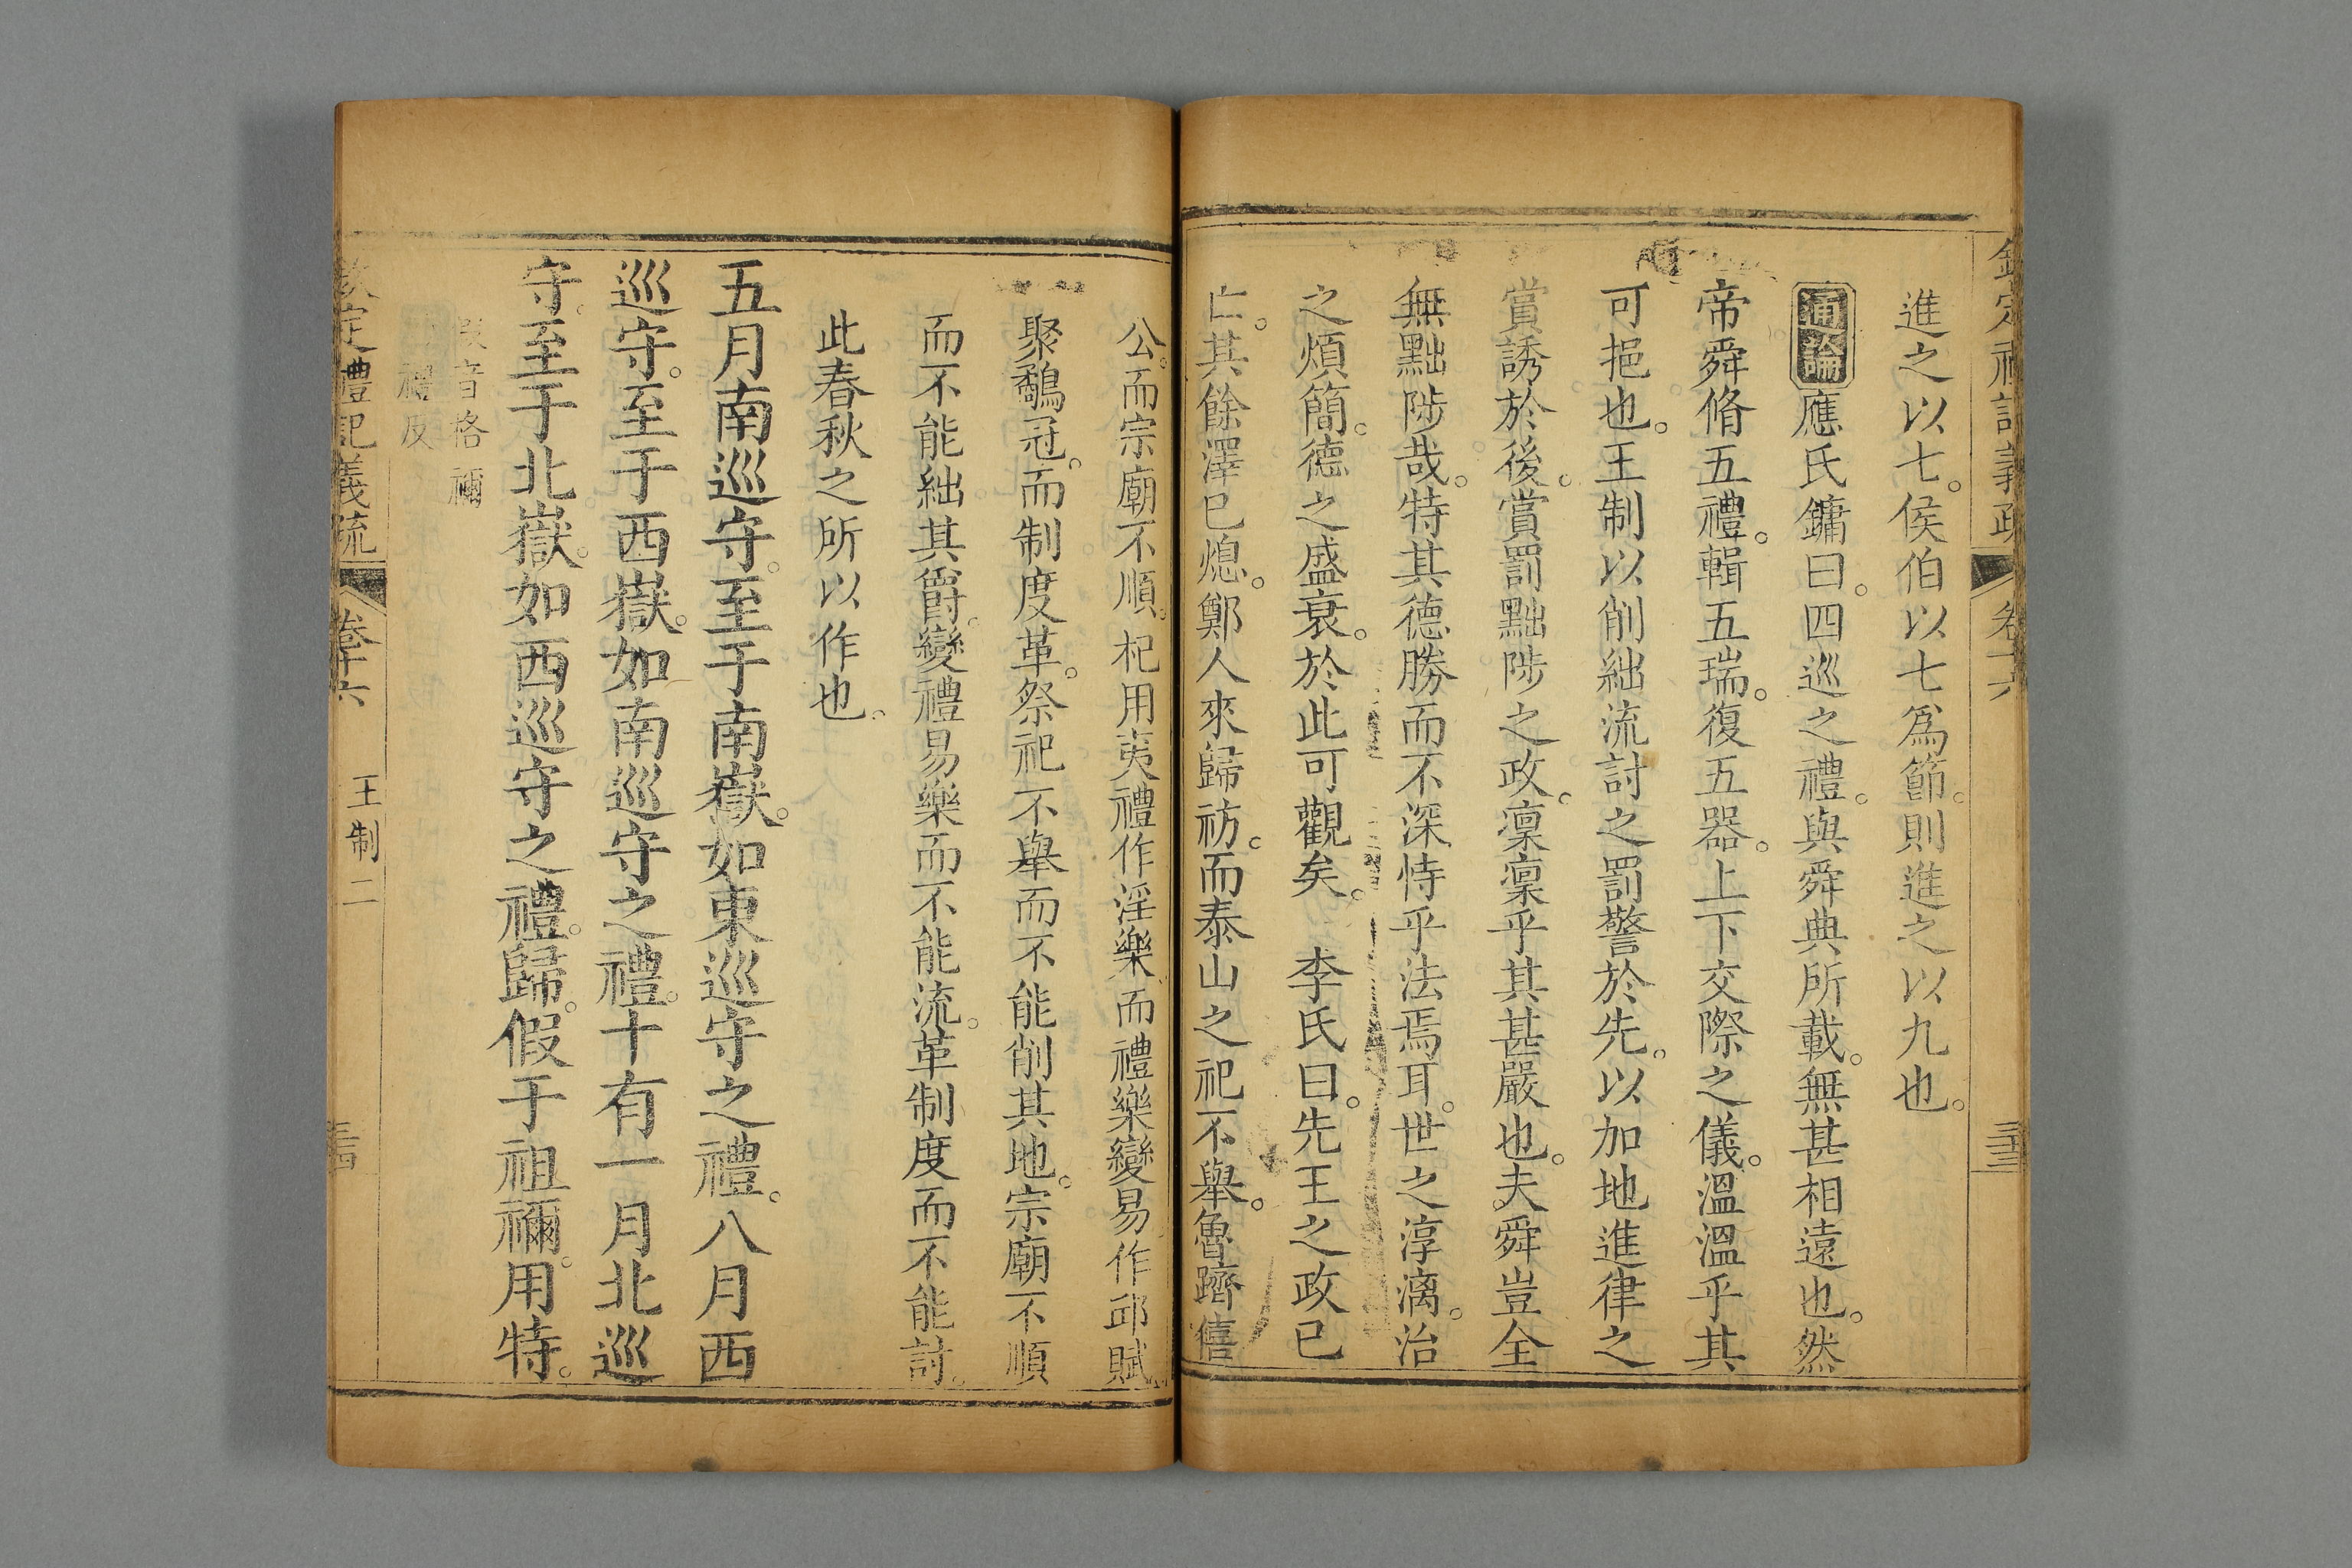 欽定禮記義疏 卷十六 三三
進之以七。侯伯以七爲節。則進之以九也。
通論應氏鏞曰。四巡之禮。與舜典所載。無甚相遠也。然
帝舜脩五禮。輯五瑞。復五器。上下交際之儀。溫溫乎其
可挹也。王制以削絀流討之罰警於先。以加地進律之
賞誘於後。賞罰黜陟之政。凜凜乎其甚嚴也。夫舜豈全
無黜陟哉。特其德勝而不深恃乎法焉耳。世之淳漓。治
之煩簡。德之盛衰。於此可觀矣。 李氏曰。先王之政已
亡。其餘澤已熄。鄭人來歸祊。而泰山之祀不舉。魯躋僖
公。而宗廟不順。杞用夷禮作淫樂。而禮樂變易。作邱賦
聚鷸冠。而制度革。祭祀不舉而不能削其地。宗廟不順
而不能絀其爵。變禮易樂而不能流。革制度而不能討。
此春秋之所以作也。
五月南巡守。至于南嶽。如東巡守之禮。八月西
巡守。至于西嶽。如南巡守之禮。十有一月北巡
守。至于北嶽。如西巡守之禮。歸。假于祖禰。用特。
音格禰
禮反
欽定禮記義疏 卷十六 王制二 三四